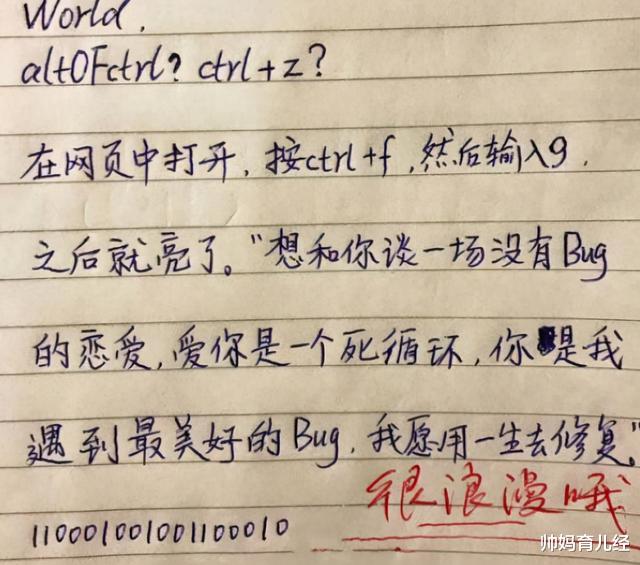 World,
alt0Fctrl? ctrl+z?
在网页中打开,按ctrl+f,然后输入9,
之后就亮了。"想和你谈一场没有Bug
的恋爱,爱你是一个死循环,你是我
遇到最美好的Bug,我愿用一生去修复。"
很浪漫哦
110001001001100010
帅妈育儿经